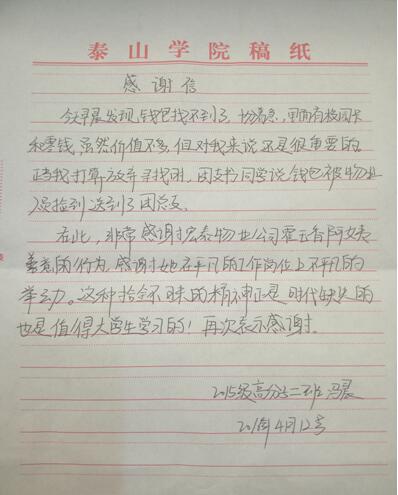 泰山学院稿纸
感谢信
今天早晨发现钱包找不到了,十分着急,里面有校园卡
和零钱,虽然价值不多,但对我来说还是很重要的
正当我打算放弃寻找时,团支书同学说钱包被物业
人员捡到送到了团总支
在此,非常感谢宏泰物业公司霍玉香阿姨
善意的行为,感谢她在平凡的工作岗位上不平凡的
举动。这种拾金不昧的精神正是时代缺失的
也是值得大学生学习的!再次表示感谢。
2015级高分子二班 冯晨
4月12号